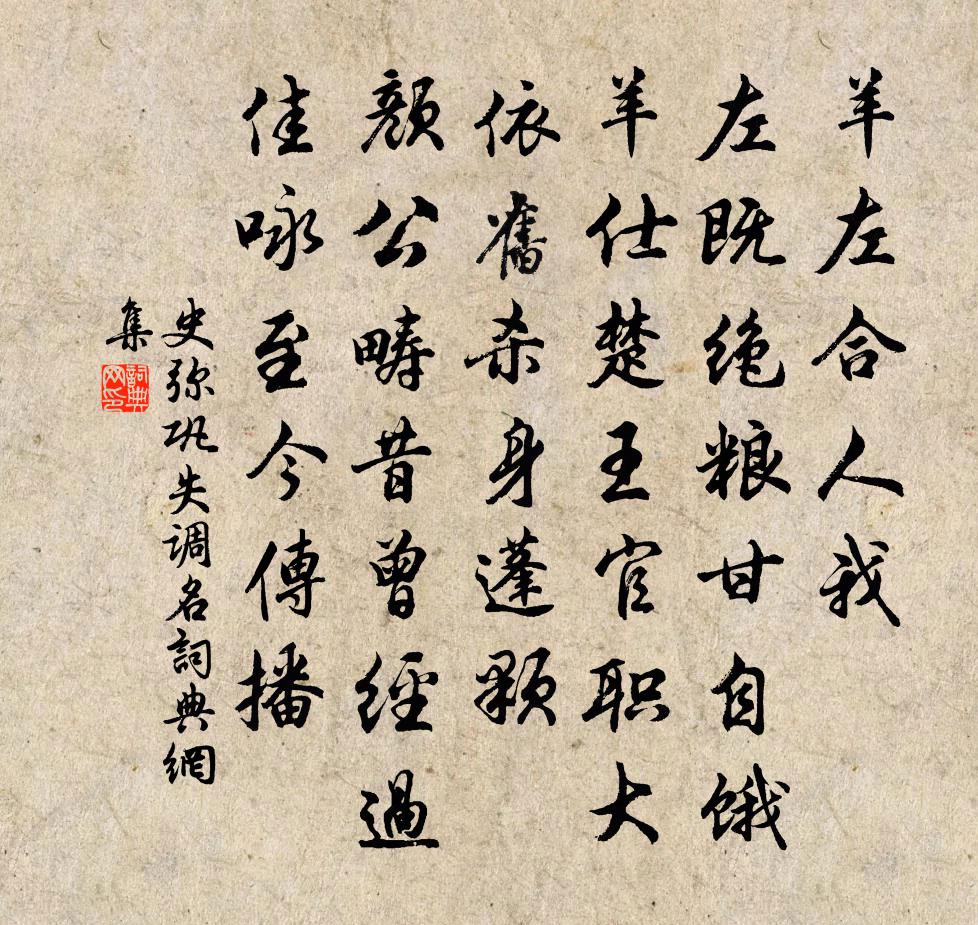 羊左合人我
左既绝粮甘自饿
羊仕楚王官职大
依舊杀身蓬颗
颜公畴昔曾經過
佳咏至今傳播
史弥巩失调名詞典網
集
詞典網印